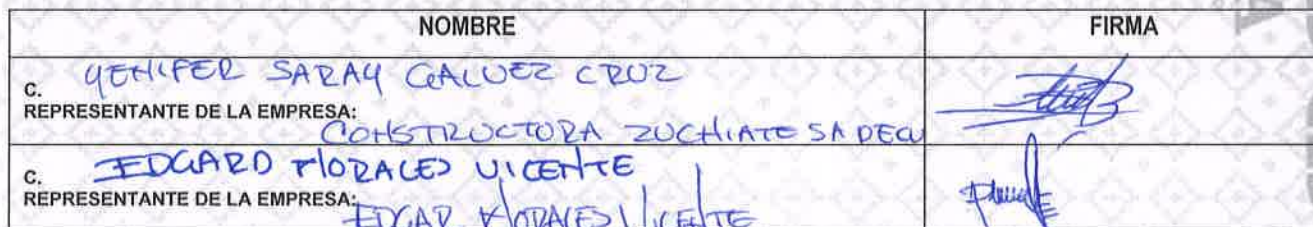 NOMBRE FIRMA
C. YENIFER SARAY GALVEZ CRUZ
REPRESENTANTE DE LA EMPRESA:
CONSTRUCTORA ZUCHIATE SA DECV
C. EDGARD MORALES VICENTE
REPRESENTANTE DE LA EMPRESA:
EDGAR MORALES VICENTE